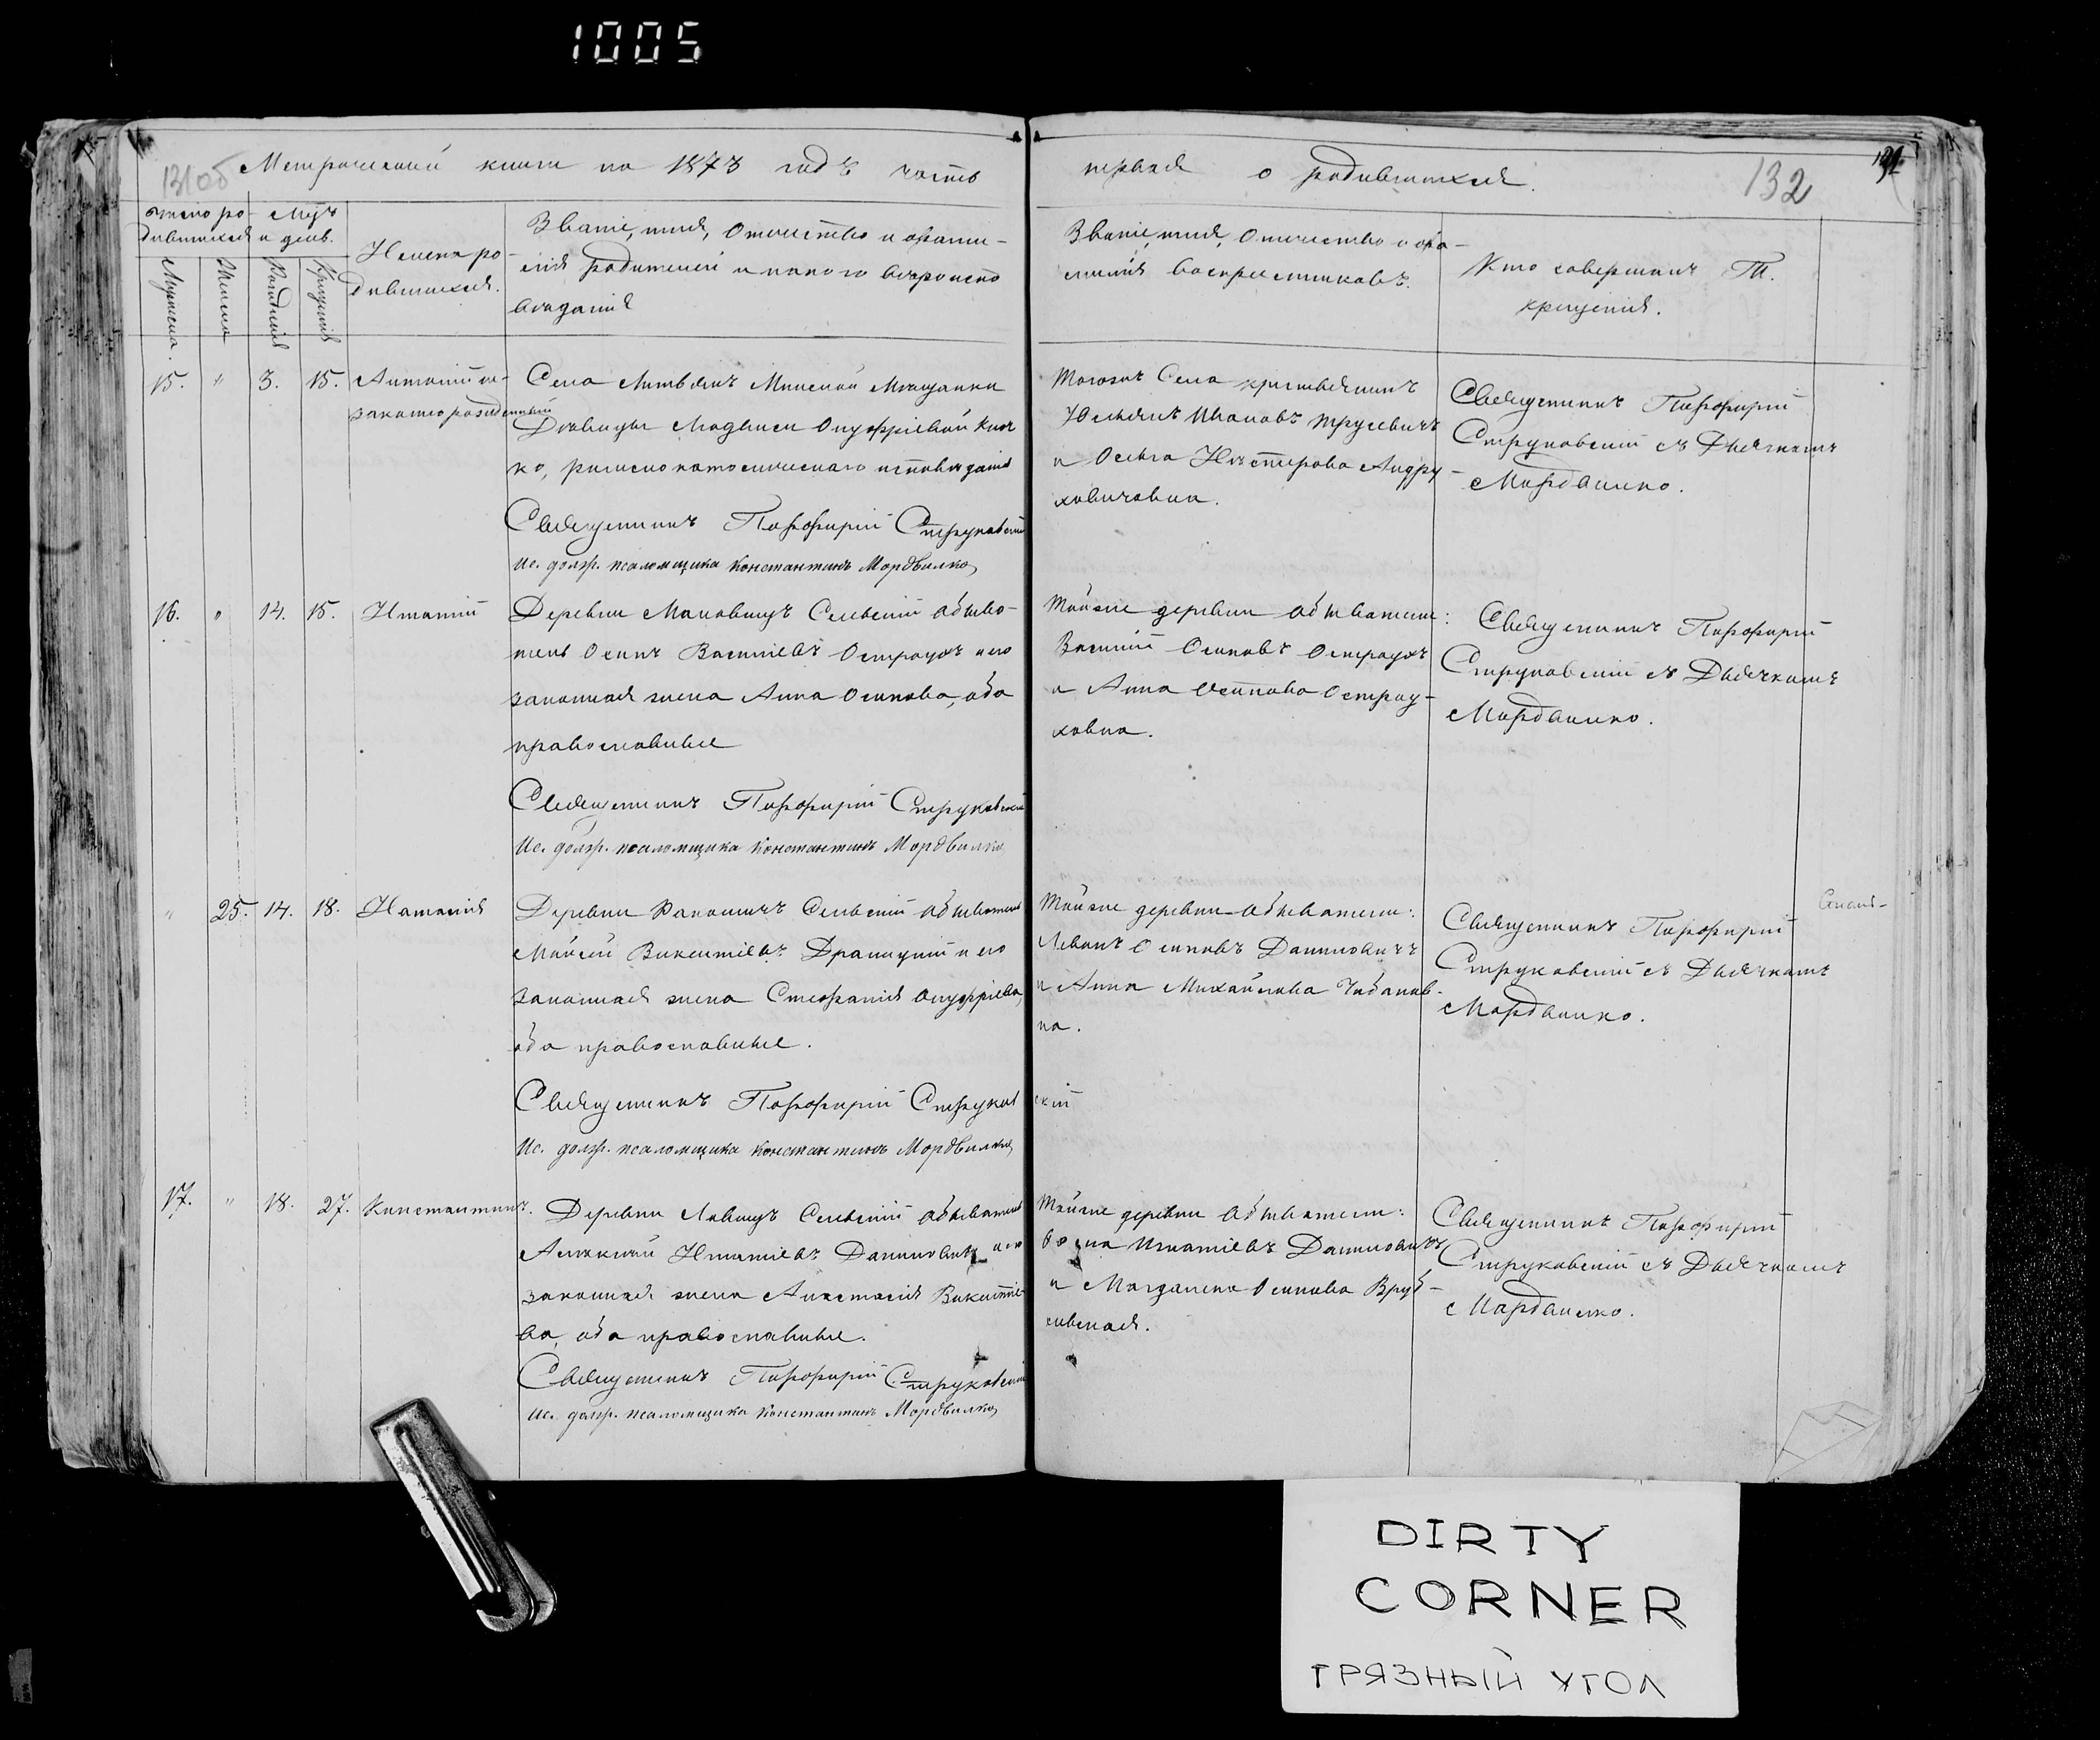 1005
131об
Метрической книги на 1873 годъ часть
первая о родившихся.
132
Счетъ ро-
дившихся
Мужеска.
Женска
Мѣс. и день.
Рожденія
Крещенія
Имена ро-
дившихся.
Званіе, имя, отчество и фами-
лія родителей и какого вѣроиспо
вѣданія
Званіе, имя, отчество и фа-
милія воспріемниковъ.
Кто совершалъ Т.
крещенія.
15. " 3. 15. Антоній не-
законорожденный
Села Минской Мѣщанки
Дѣвицы Онуфріевой
ко, римско католическаго исповѣданія
Священникъ Порфирій Струковскій
Ис. долж. псаломщика Константинъ Мордвилко
Тогожъ Села крестьянинъ
Юльянъ Ивановъ Трусевичъ
и Ольга Нестерова Андру-
ховичовна.
Священникъ Порфирій
Струковскій съ Дьячкомъ
Мордвилко.
16. " 14. 15. Игнатій
Деревни Сельскій обыва-
тель Осипъ Васильевъ Остраухъ и его
законная жена Анна Осипова, оба
православные
Священникъ Порфирій Струковскій
Ис. долж. псаломщика Константинъ Мордвилко
Тойже деревни обыватели:
Василій Осиповъ Остраухъ
и Анна Осипова Острау-
ховна.
Священникъ Порфирій
Струковскій съ Дьячкомъ
Мордвилко.
" 25. 14. 18. Наталія
Деревни Сельскій обыватель
Мойсей Викентіевъ Драницкій и его
законная жена Стефанія Онуфріева,
оба православные.
Священникъ Порфирій Струков
скій
Ис. долж. псаломщика Константинъ Мордвилко
Тойже деревни обыватели:
Леванъ Осиповъ Даниловичъ
и Анна Михайлова Чабанов-
на.
Священникъ Порфирій
Струковскій съ Дьячкомъ
Мордвилко.
17. " 18. 27. Константинъ.
Деревни Сельскій обыватель
Алексѣй Игнатіевъ Даниловичъ и его
законная жена Анастасія Викентіе-
ва, оба православные.
Священникъ Порфирій Струковскій
Ис. долж. псаломщика Константинъ Мордвилко
Тойже деревни обыватели:
Игнатіевъ Даниловичъ
и Магдалена Осипова Вруб-
левская.
Священникъ Порфирій
Струковскій съ Дьячкомъ
Мордвилко.
DIRTY
CORNER
ГРЯЗНЫЙ УГОЛ